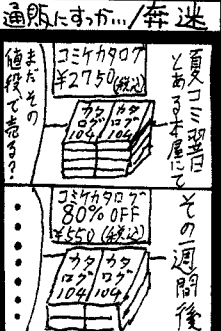 通販にすっか…/奔迷
夏コミ翌日
とある本屋にて
コミケカタログ
¥2750(税込)
カタログ104
カタログ104
まだその
値段で売る?
その一週間後
コミケカタログ
80%OFF
¥550(税込)
カタログ104
カタログ104
・・・・・・